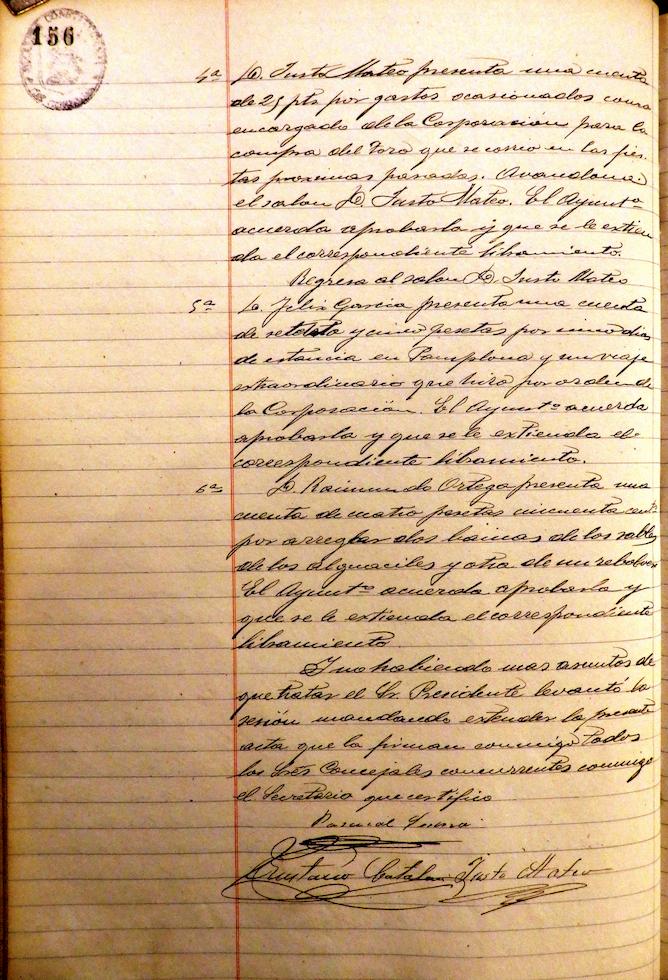 156
4ª D. Justo Mateo presenta una cuenta
de 25 pts por gastos ocasionados como
encargado de la Corporación para la
compra del Toro que se corrio en las fies-
tas proximas pasadas. Avandona
el salon D. Justo Mateo. El Ayuntº
acuerda aprobarla y que se le extien
da el correspondiente libramiento.
Regresa al salon D. Justo Mateo
5ª D. Felix Garcia presenta una cuenta
de setenta y cinco pesetas por cinco dias
de estancia en Pamplona y un viaje
extraordinario que hizo por orden de
la Corporación. El Ayuntº acuerda
aprobarla y que se le extienda el
correspondiente libramiento.
6ª D. Raimundo Ortega presenta una
cuenta de cuatro pesetas cincuenta centº
por arreglar dos bainas de los sables
de los alguaciles y otra de un rebolver
El Ayuntº acuerda aprobarla y
que se le extienda el correspondiente
libramiento.
Y no habiendo mas asuntos de
que tratar el Sr. Presidente levantó la
sesión mandando extender la presente
acta que la firman conmigo todos
los Sres Concejales concurrentes conmigo
el Secretario que certifico
Pascual
Eustasio Catalan Justo Mateo